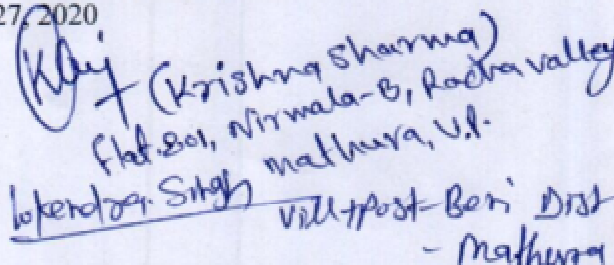 27, 2020
(Krishna Sharma)
Flat-801, Nirmala-B, Radha valley
mathura, U.P.
Lokendra Singh
Vill+post-Beri Dist
- Mathura